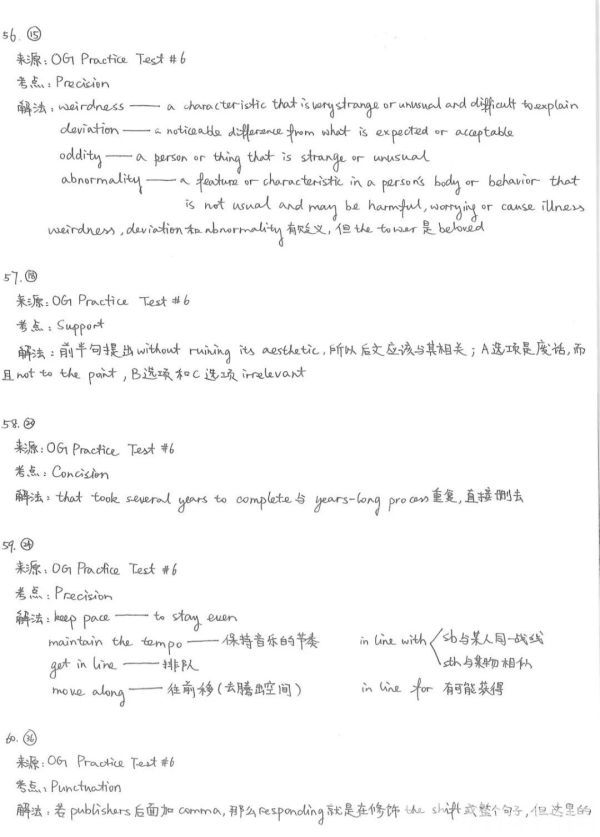 56. ⑮
来源：OG Practice Test #6
考点：Precision
解法：weirdness —— a characteristic that is very strange or unusual and difficult to explain
deviation —— a noticeable difference from what is expected or acceptable
oddity —— a person or thing that is strange or unusual
abnormality —— a feature or characteristic in a person's body or behavior that
is not usual and may be harmful, worrying or cause illness
weirdness, deviation和abnormality有贬义，但the tower是beloved
57. ⑱
来源：OG Practice Test #6
考点：Support
解法：前半句提出without ruining its aesthetic，所以后文应该与其相关；A选项是废话，而
且not to the point，B选项和C选项irrelevant
58.
来源：OG Practice Test #6
考点：Concision
解法：that took several years to complete与years-long process重复，直接删去
59.
来源：OG Practice Test #6
考点：Precision
解法：keep pace —— to stay even
maintain the tempo —— 保持音乐的节奏 in line with sb与某人同一战线
get in line —— 排队 sth与某物相似
move along —— 往前移（去腾出空间） in line for 有可能获得
60. ㊱
来源：OG Practice Test #6
考点：Punctuation
解法：若publishers后面加comma，那么responding就是在修饰the shift或整个句子，但这里的